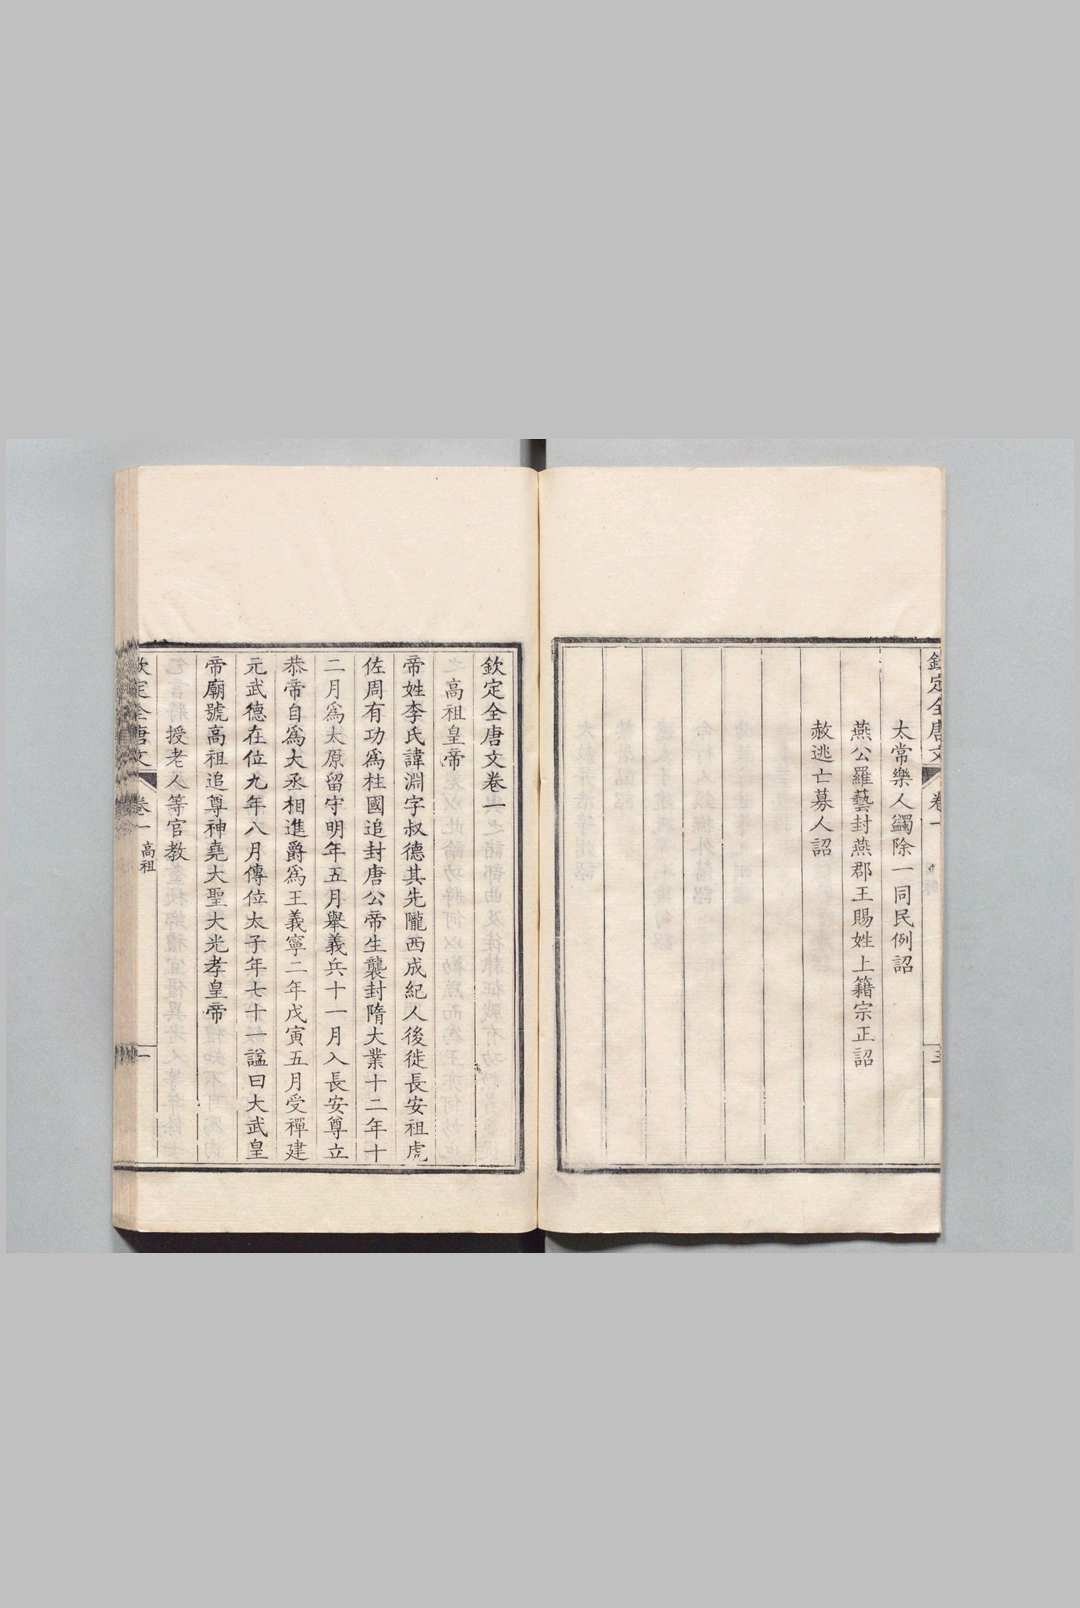 欽定全唐文 卷一 三
太常樂人蠲除一同民例詔
燕公羅藝封燕郡王賜姓上籍宗正詔
赦逃亡募人詔
欽定全唐文卷一
高祖皇帝
帝姓李氏諱淵字叔德其先隴西成紀人後徙長安祖虎
佐周有功爲柱國追封唐公帝生襲封隋大業十二年十
二月爲太原留守明年五月舉義兵十一月入長安尊立
恭帝自爲大丞相進爵爲王義寧二年戊寅五月受禪建
元武德在位九年八月傳位太子年七十一諡曰大武皇
帝廟號高祖追尊神堯大聖大光孝皇帝
授老人等官教
欽定全唐文 卷一 高祖 一